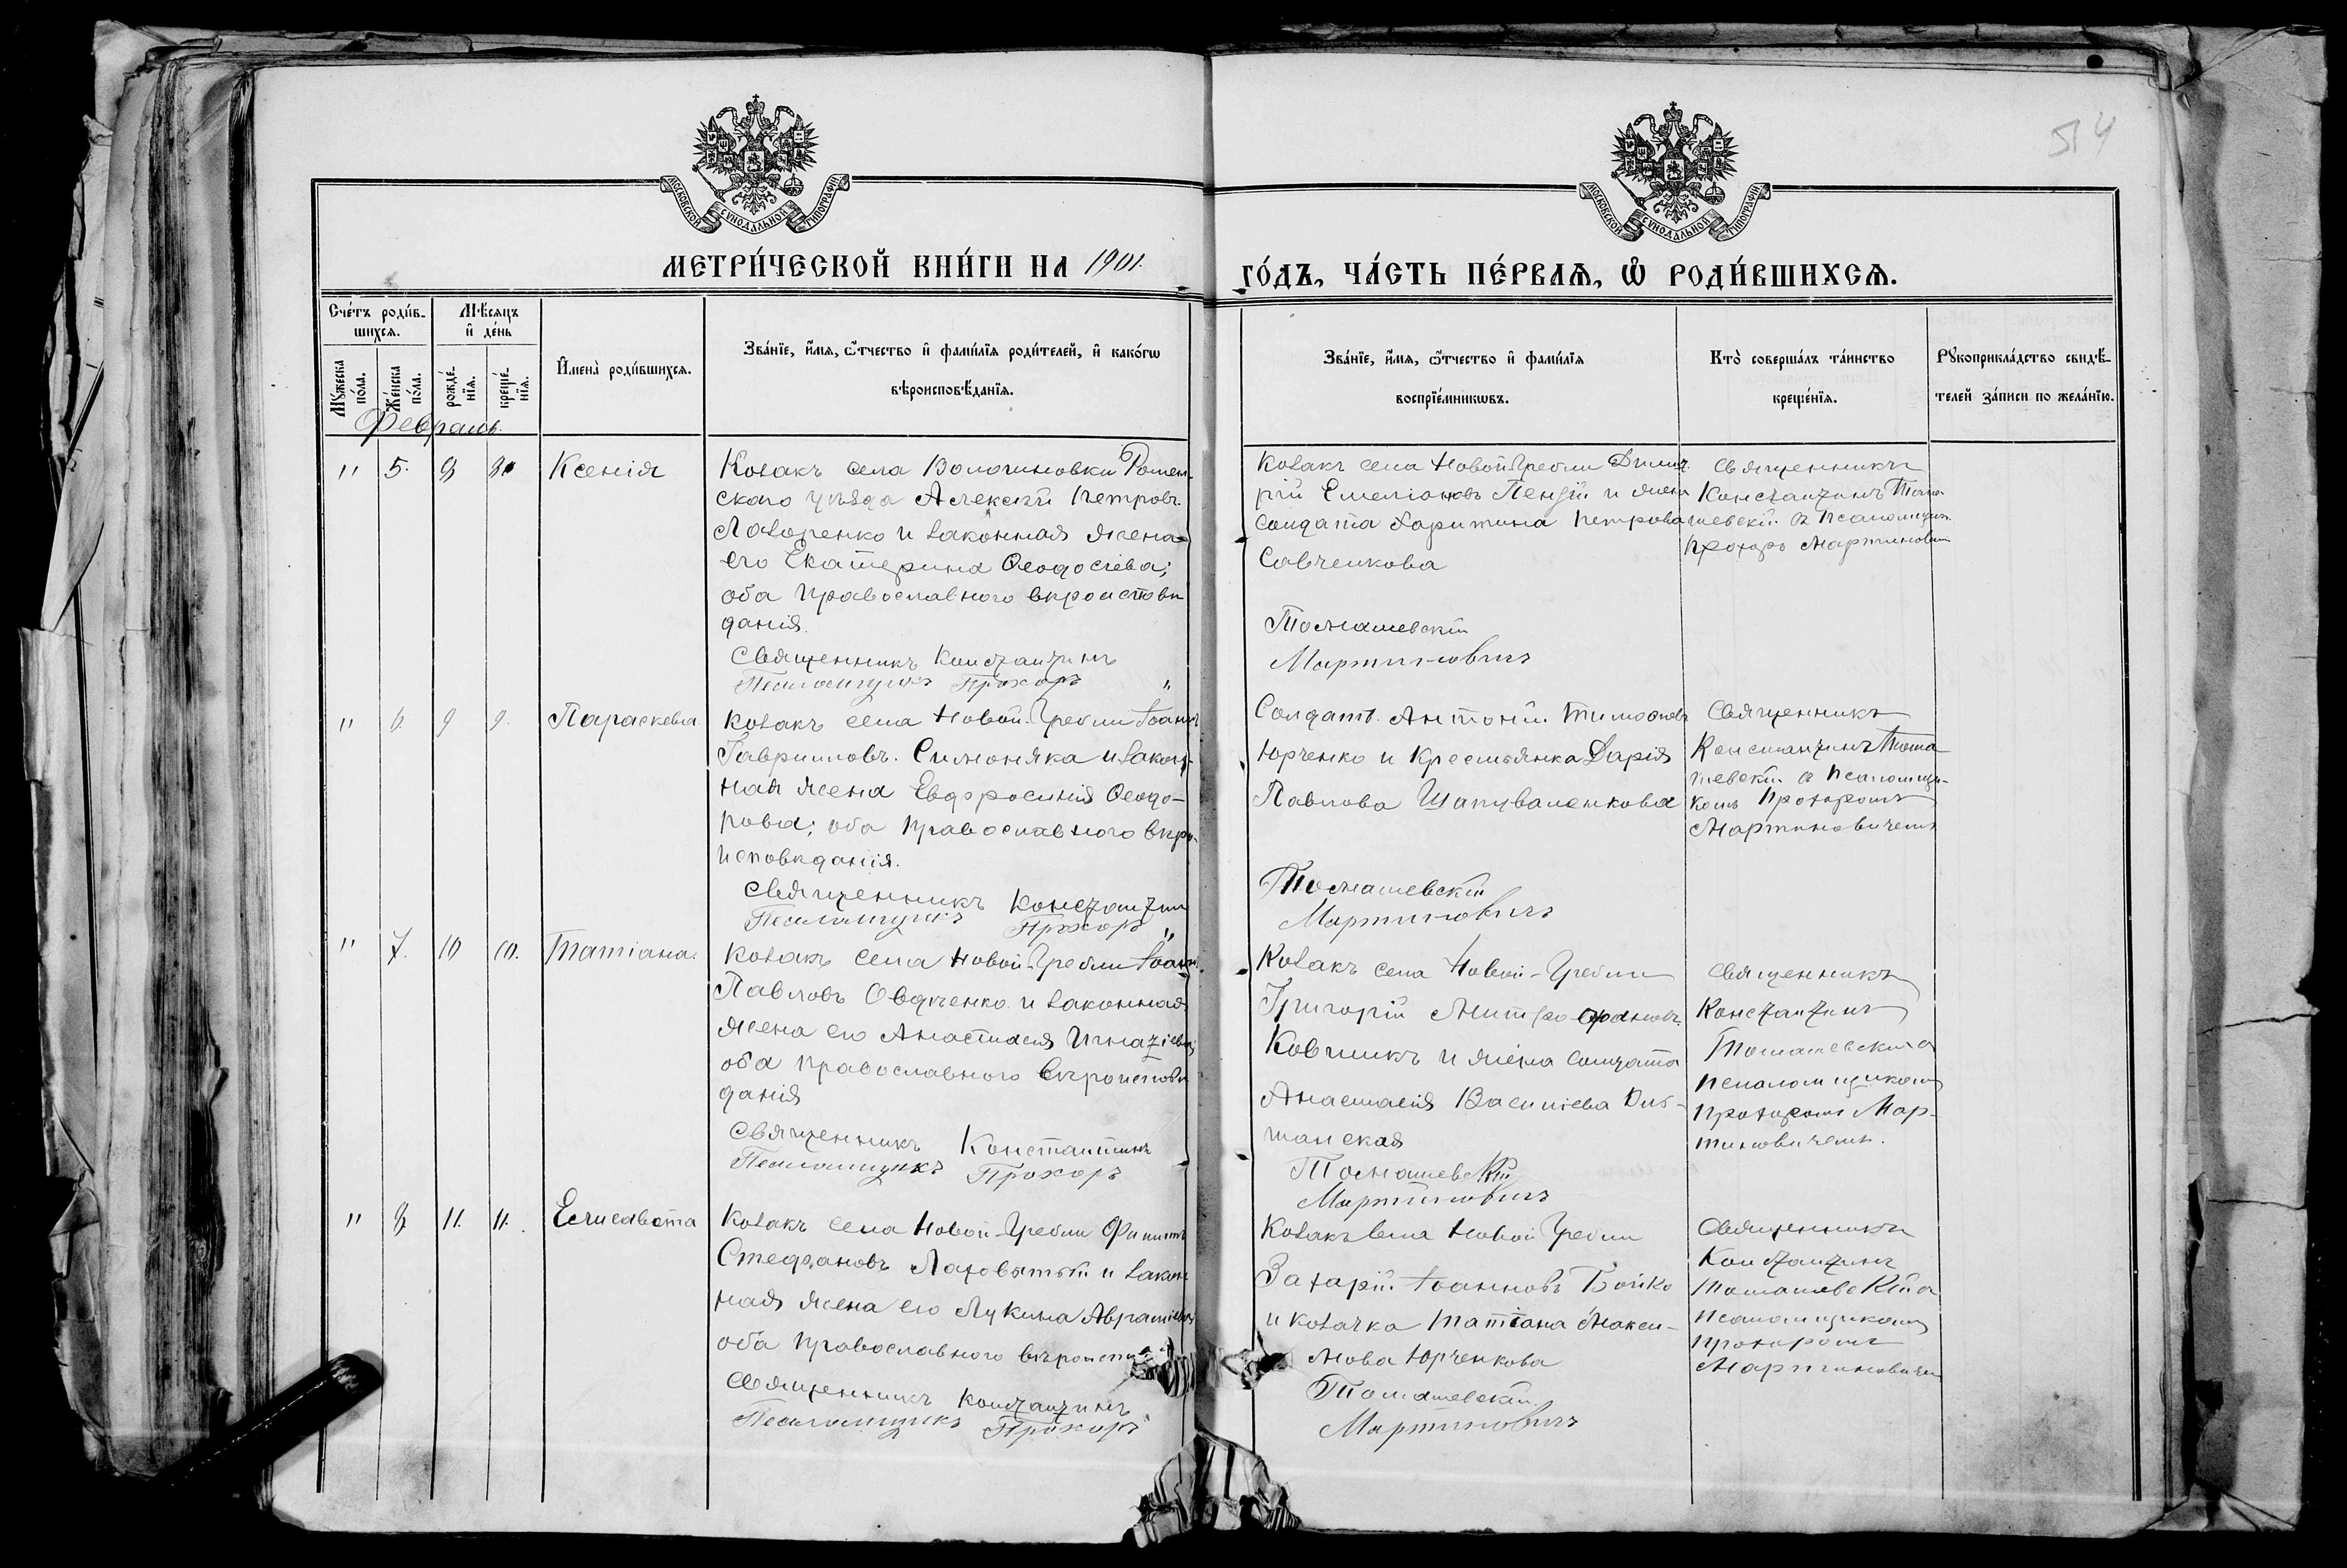 514
МОСКОВСКОЙ СѴНОДАЛЬНОЙ ТИПОГРАФІИ
МОСКОВСКОЙ СѴНОДАЛЬНОЙ ТИПОГРАФІИ
МЕТРИ́ЧЕСКОЙ КНИ́ГИ НА 1901.
ГО́ДЪ, ЧА́СТЬ ПЕ́РВАѦ, Ѽ РОДИ́ВШИХСѦ.
Сче́тъ роди́в-
шихсѧ.
Мѣ́сѧцъ
и҆ де́нь
Мꙋ́жеска
по́ла.
Же́нска
по́ла.
рожде́-
нїѧ.
креще́-
нїѧ.
И҆мена̀ роди́вшихсѧ.
Зва́нїе, и҆́мѧ, ѻ҆́тчество и҆ фами́лїѧ роди́телей, и҆ како́гѡ
вѣроисповѣ́данїѧ.
Зва́нїе, и҆́мѧ, ѻ҆́тчество и҆ фами́лїѧ
воспрїе́мникѡвъ.
Кто̀ соверша́лъ та́инство
креще́нїѧ.
Рꙋкоприкла́дство свидѣ́-
телей за́писи по жела́нїю.
Февраль.
" 5. 8 8 Ксенія
Козакъ села Вологиновки Ромен-
скаго уѣзда Алексѣй Петровъ
Лазоренко и законная жена
его Екатерина Ѳеодосіева;
оба православнаго вѣроисповѣ
данія.
Священникъ Константинъ
Псаломщикъ Прохоръ
Козакъ села Новой Гребли Димит
рій Емеліановъ и жена
солдата Харитина Петрова
Савченкова
Томашевскій
Мартиновичъ
Священникъ
Константинъ Тома-
шевскій съ псаломщик.
Прохоръ Мартинович
" 6. 9 9. Параскева
Козакъ села Новой-Гребли Іоаннъ
Гавриловъ. Симоняка и закон-
ная жена Евфросинія Ѳеодо-
рова; оба православнаго вѣро-
исповѣданія.
Священникъ Константин
Псаломщикъ Прохоръ "
Солдатъ. Антоній Тимоѳеевъ
Юрченко и крестьянка Дарія
Павлова Шаповаленкова
Томашевскій
Мартиновичъ
Священникъ
Константинъ Тома-
шевскій съ псаломщи-
комъ Прохоромъ
Мартиновичемъ
" 7. 10 10. Татіана.
Козакъ села Новой-Гребли Іоанн.
Павловъ Овдѣенко и законная
жена его Анастасія Игнатіева;
оба православнаго вѣроисповѣ
данія
Священникъ Константинъ
Псаломщикъ Прохоръ
Козакъ села Новой-Гребли
Григорій Митрофановъ
Ковшикъ и жена солдата
Анастасія Василіева
Томашевскій
Мартиновичъ
Священникъ
Константинъ
Томашевскій съ
псаломщикомъ
Прохоромъ Мар-
тиновичемъ.
" 8 11. 11. Елисавета
Козакъ села Новой-Гребли Филиппъ
Стефановъ и закон
ная жена его Лукина
оба православнаго вѣроиспов
Священникъ Константинъ
Псаломщикъ Прохоръ
Козакъ села Новой Гребли
Захарій Іоанновъ Бойко
и козачка Татіана Макси-
мова Юрченкова
Томашевскій
Мартиновичъ
Священникъ
Константинъ
Томашевскій съ
псаломщикомъ
Прохоромъ
Мартиновичем